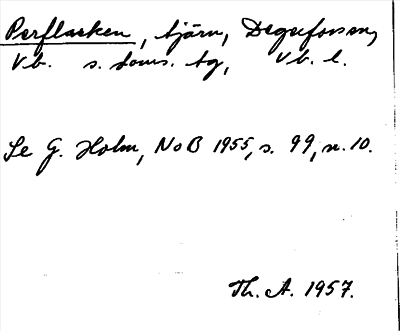 Perflasken, tjärn, Degerforssn,
Vb. s. doms. tg, Vb. l.
Se G. Holm, NoB 1955, s. 99, n. 10.
Th. A. 1957.